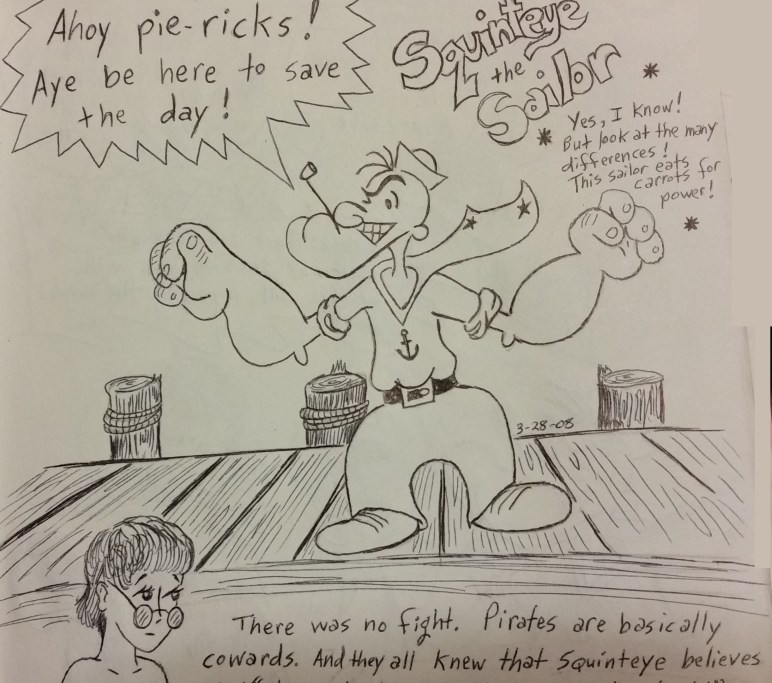 Ahoy pie-ricks!
Aye be here to save
the day!
Squinteye
the
Sailor
* Yes, I know!
But look at the many
differences!
This sailor eats
carrots for
power! *
3-28-08
There was no fight. Pirates are basically
cowards. And they all knew that Squinteye believes